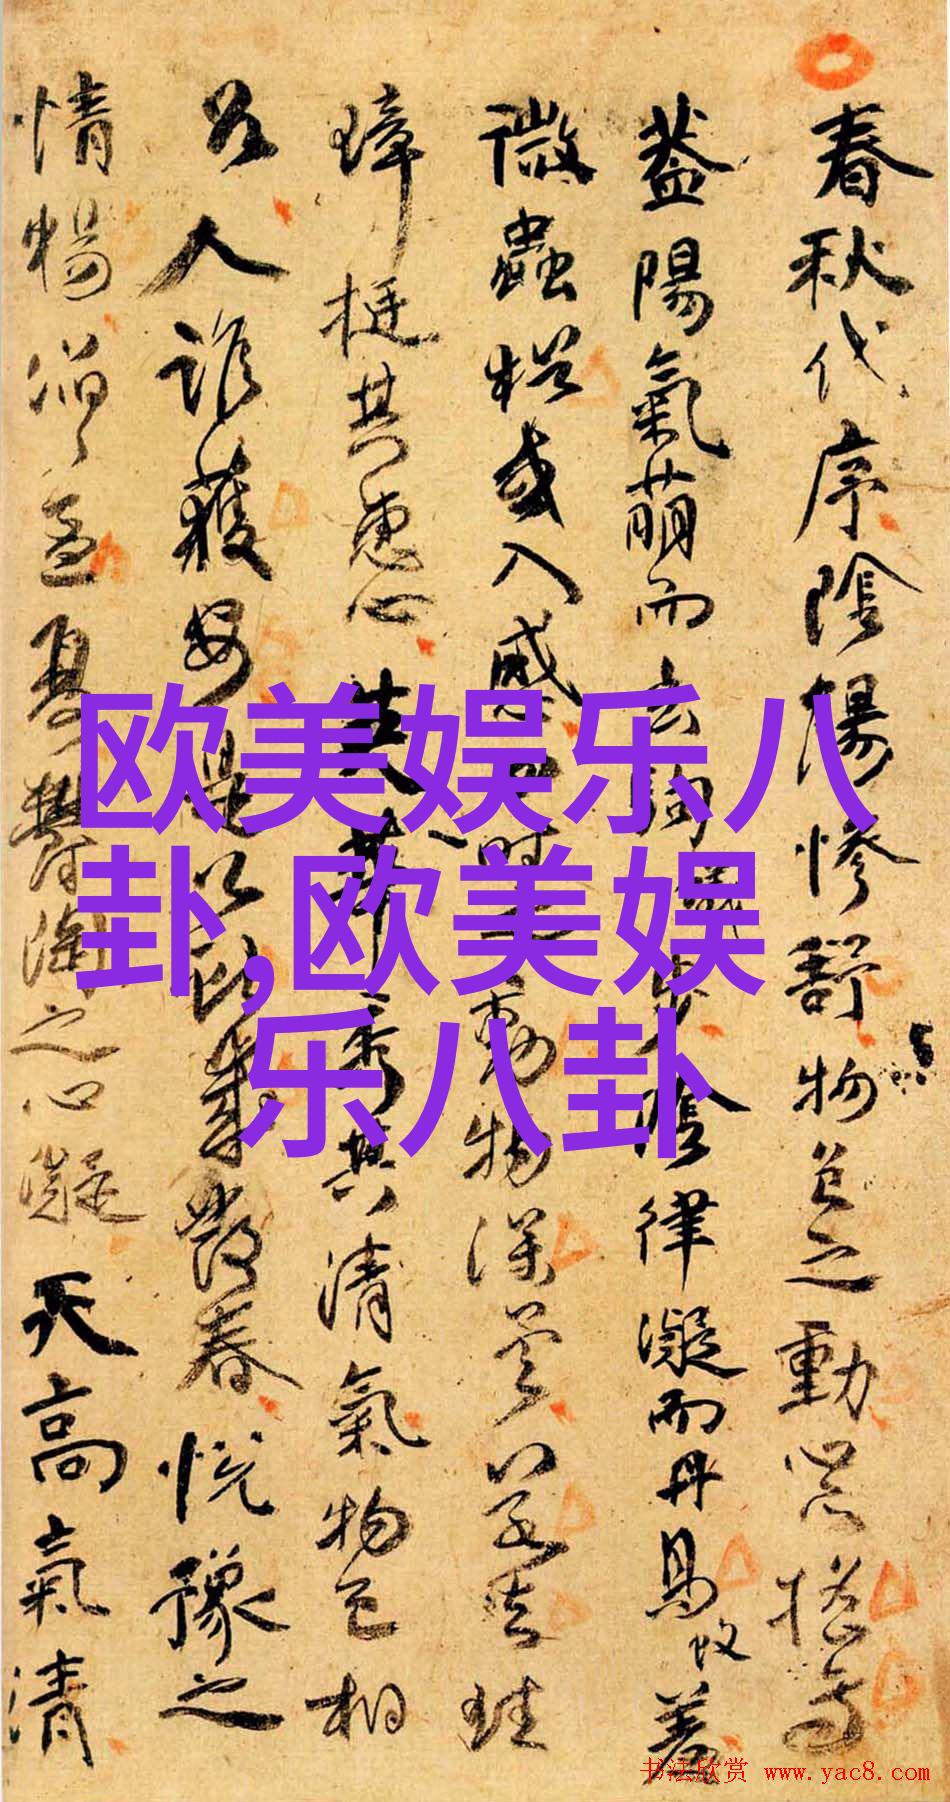 春秋代序陰陽慘舒物色之動心亦搖焉
蓋陽氣萌而玄駒步陰律凝而丹鳥羞
微蟲猶或入感四時之動物深矣若夫珪
璋挺其惠心英華秀其清氣物色相
召人誰獲安是以獻歲發春悅豫之
情暢滔々孟夏鬱陶之心凝天高氣清
欧美娱乐八
卦,欧美娱
乐八卦
书法欣赏 www.yac8.com